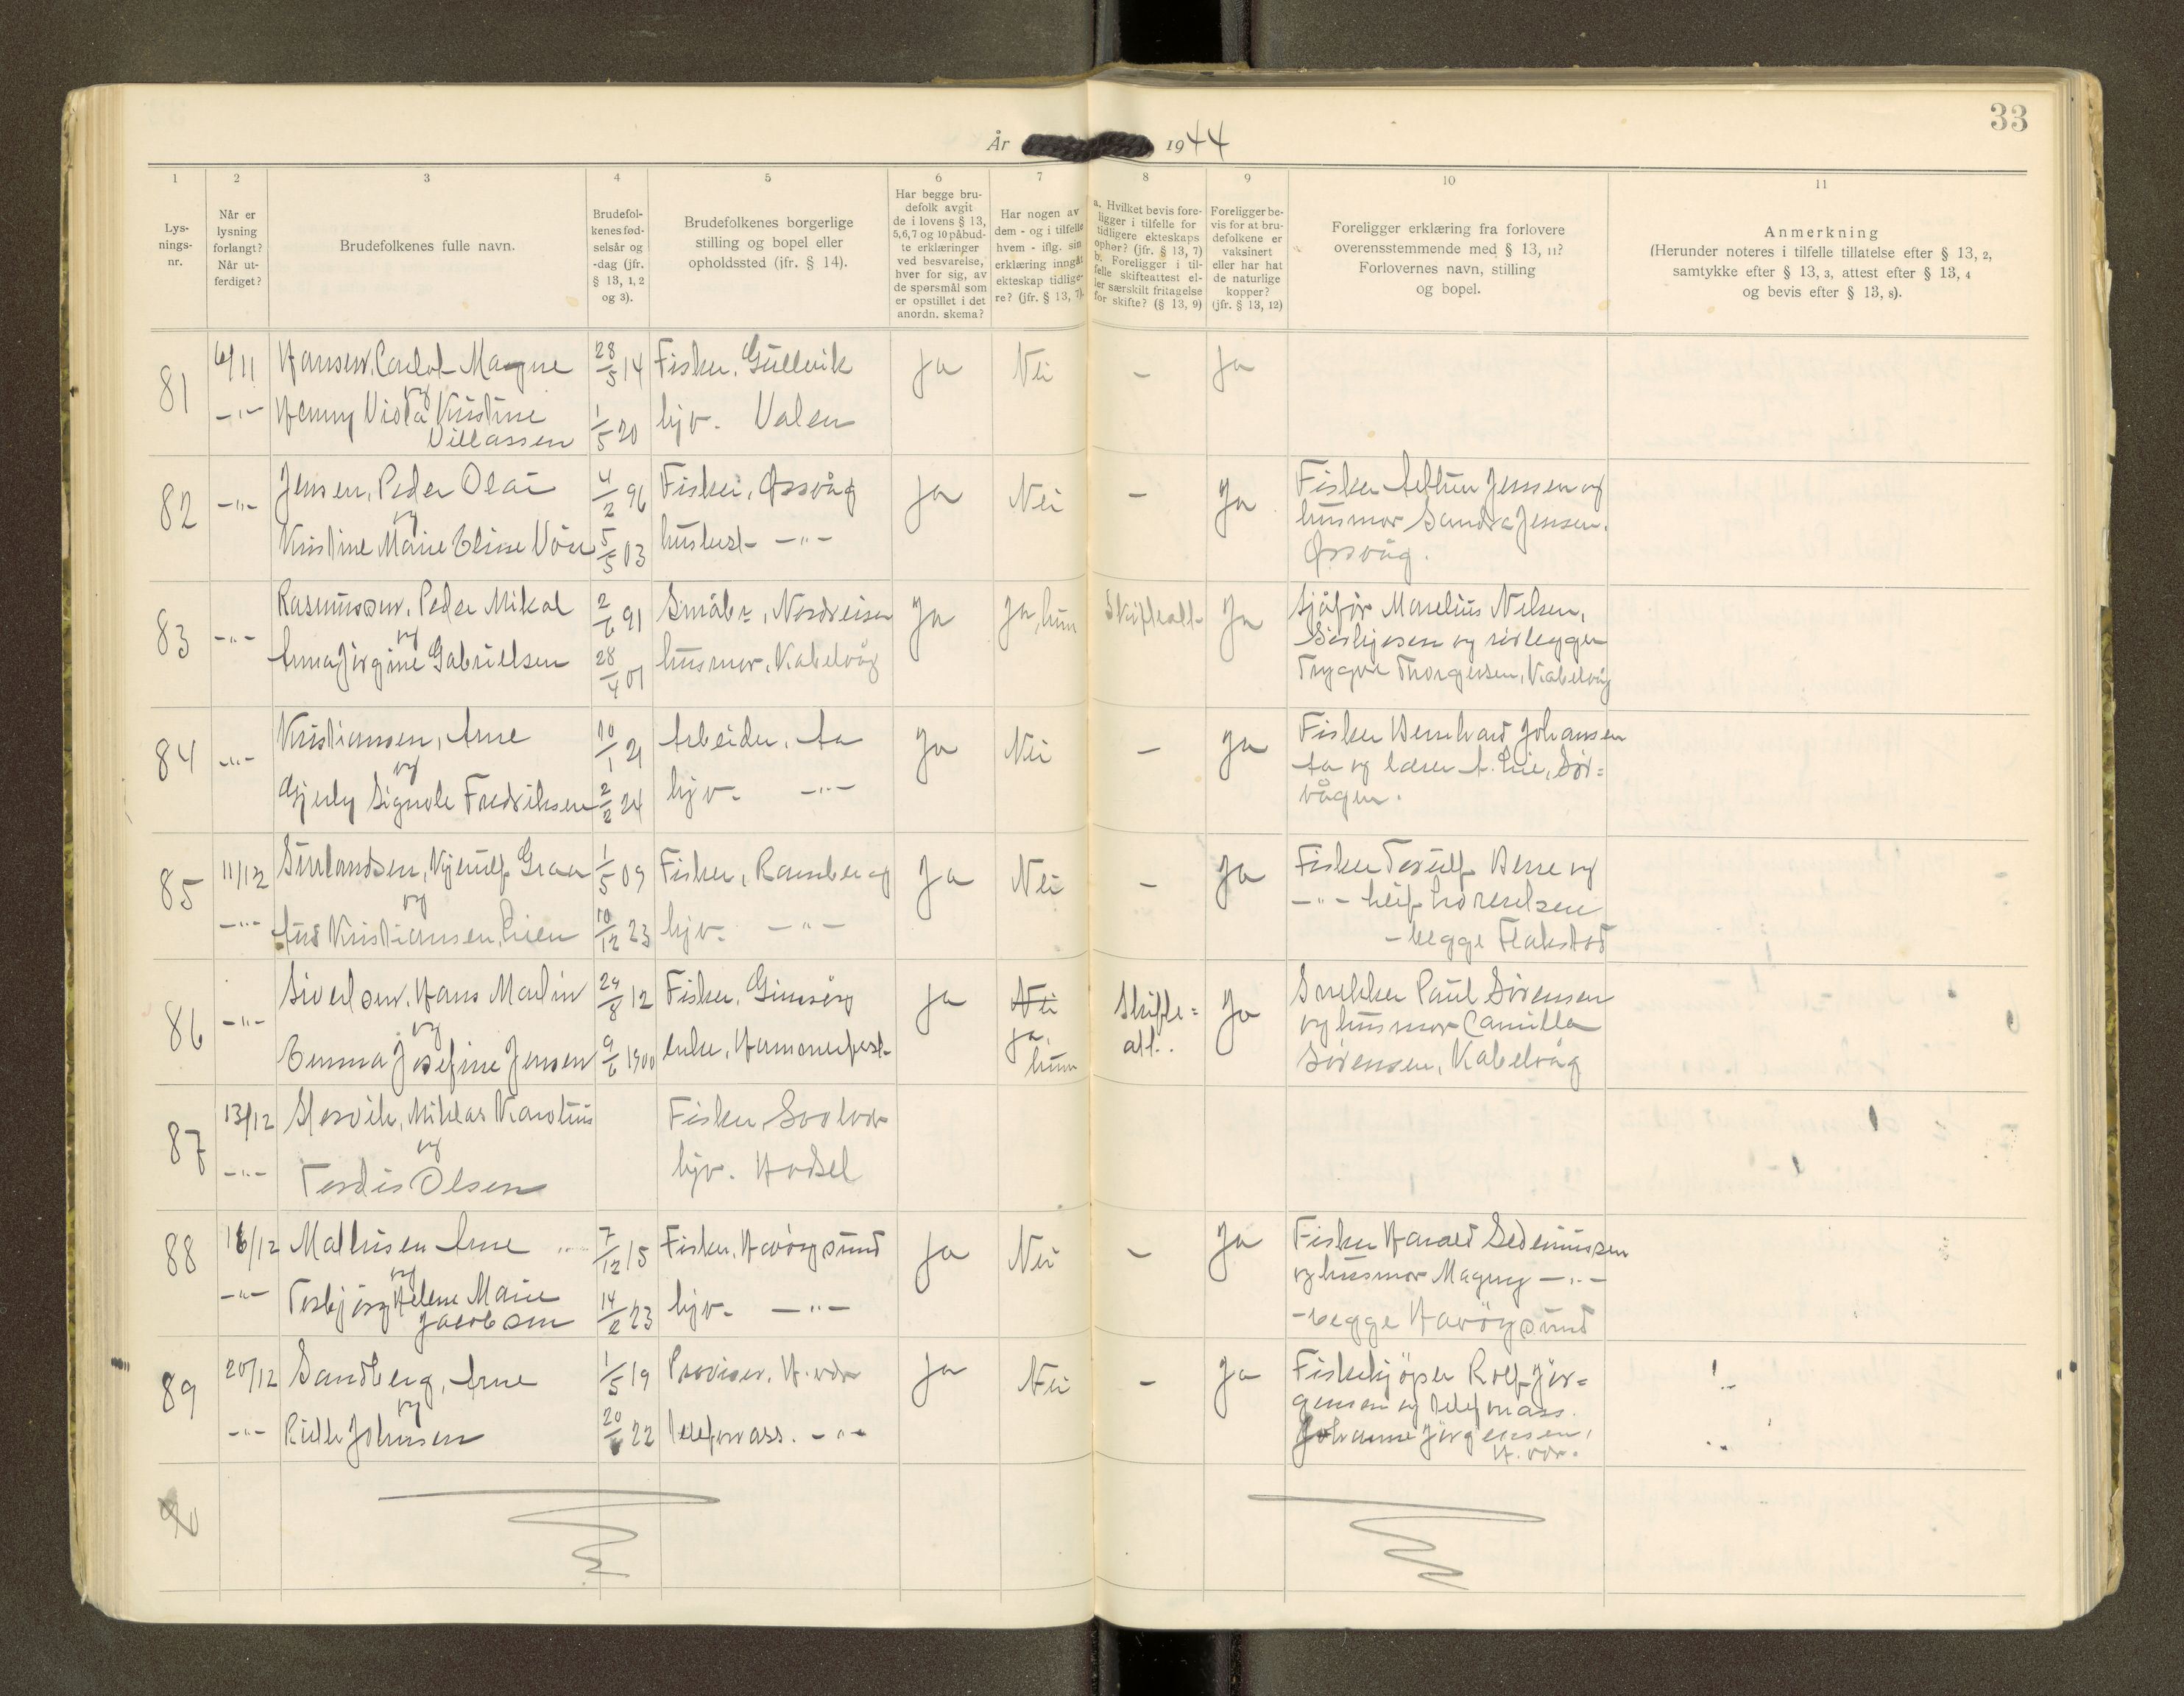 33
År 1944
1 2 3 4 5 6 7 8 9 10 11
Lys-
nings-
nr.
Når er
lysning
forlangt?
Når ut-
ferdiget?
Brudefolkenes fulle navn.
Brudefol-
kenes fød-
selsår og
-dag (jfr.
§ 13, 1, 2
og 3).
Brudefolkenes borgerlige
stilling og bopel eller
opholdssted (jfr. § 14).
Har begge bru-
defolk avgit
de i lovens § 13,
5,6,7 og 10 påbud-
te erklæringer
ved besvarelse,
hver for sig, av
de spørsmål som
er opstillet i det
anordn. skema?
Har nogen av
dem - og i tilfelle
hvem - iflg. sin
erklæring inngåt
ekteskap tidlige-
re? (jfr. § 13, 7).
a. Hvilket bevis fore-
ligger i tilfelle for
tidligere ekteskaps
ophør? (jfr. § 13, 7)
b. Foreligger i til-
felle skifteattest el-
ler særskilt fritagelse
for skifte? (§ 13, 9)
Foreligger be-
vis for at bru-
defolkene er
vaksinert
eller har hat
de naturlige
kopper?
(jfr. § 13, 12)
Foreligger erklæring fra forlovere
overensstemmende med § 13, 11?
Forlovernes navn, stilling
og bopel.
Anmerkning
(Herunder noteres i tilfelle tillatelse efter § 13, 2,
samtykke efter § 13, 3, attest efter § 13, 4
og bevis efter § 13, 8).
81 6/11 Hansen, Carlot Magne 28/5 14 Fisker, Gullvik Ja Nei - Ja
og
-"- Henny Viola Kristine 1/5 20 hjv. Valen
Villassen
82 -"- Jensen, Peder Olai 4/2 96 Fisker, Ørsvåg Ja Nei - Ja Fisker Arthur Jensen og
og husmor Sandra Jensen,
Kristine Marie Elise 5/5 03 husbest. -"- Ørsvåg.
83 -"- Rasmussen, Peder Mikal 2/6 91 Småbr., Nordreisa Ja Ja, hun Skifteatt. Ja Sjåfør Marelius Nilsen,
og og rørlegger
Anna Jørgine Gabrielsen 28/4 01 husmor, Kabelvåg Trygve Thorgersen, Kabelvåg
84 -"- Kristiansen, Arne 10/1 21 Arbeider, Aa Ja Nei - Ja Fisker Bernhard Johansen
og Aa og lærer A. Lie, Sør-
Gjerly Signole Fredriksen 2/2 24 hjv. -"- vågen.
85 11/12 Kjerulf Graa 1/5 09 Fisker, Ramberg Ja Nei - Ja Fisker Torulf Berre og
og -"- Leif Lorentzen
-"- Aud Kristiansen Lien 10/12 23 hjv. -"- - begge Flakstad
86 -"- Sivertsen, Hans Martin 29/8 12 Fisker, Gimsøy Ja Nei Skifte- Ja Snekker Paul Sørensen
og ja, att. og husmor Camilla
Emma Josefine Jensen 9/6 1900 enke, Hammerfest hun Sørensen, Kabelvåg
87 13/12 Storvik, Niklas Karolius Fisker Svolvær
og
-"- Tordis Olsen hjv. Hadsel
88 16/12 Mathisen Arne 7/12 15 Fisker, Havöysund Ja Nei - Ja Fisker Harald Sedeniussen
og og husmor Magny -"-
-"- Torbjørg Helene Marie 14/2 23 hjv. -"- - begge Havöysund
Jacobsen
89 20/12 Sandberg, Arne 1/5 19 Provisor, H. vær Ja Nei - Ja Fiskekjöper Rolf Jör-
og gensen og telefonass.
-"- Ruth Johnsen 20/ 22 telefonass. -"- Johanne Jörgensen,
H. vær.